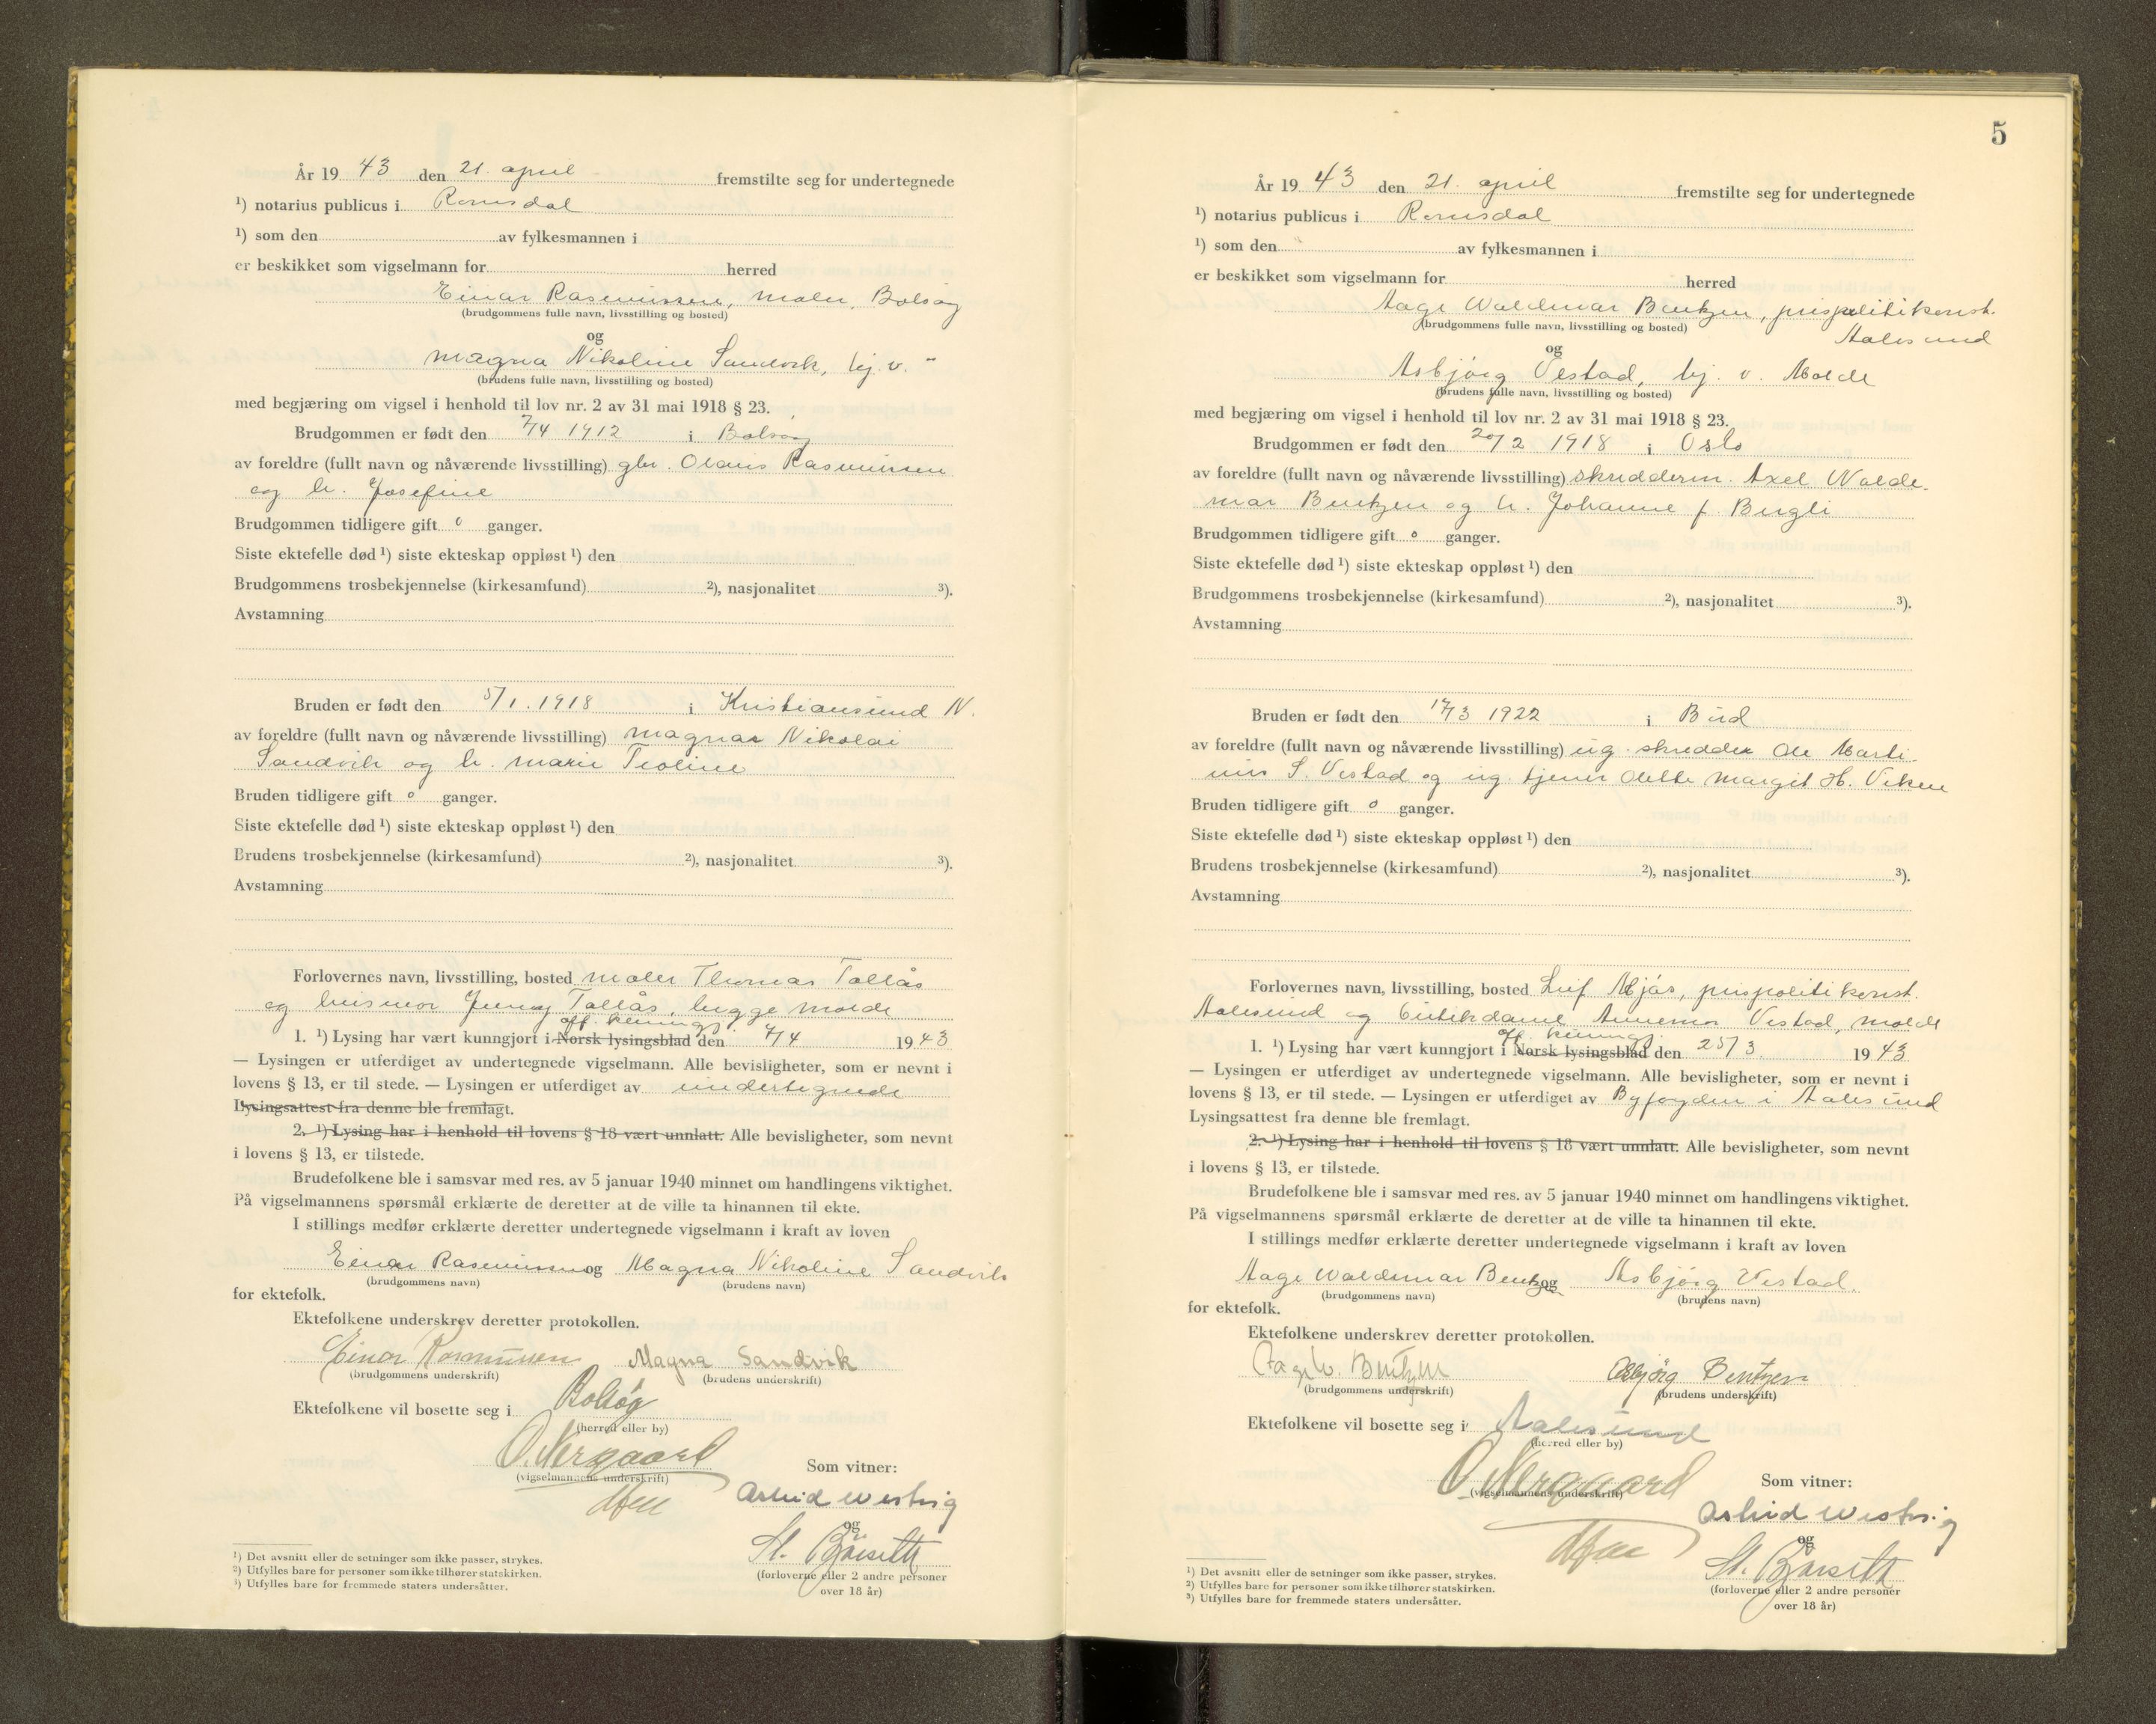 År 19 43 den 21. april fremstilte seg for undertegnede
¹) notarius publicus i Romsdal
¹) som den av fylkesmannen i
er beskikket som vigselmann for herred
Einar Rasmussen, maler, Bolsøy
(brudgommens fulle navn, livsstilling og bosted)
og
Magna Nikoline Sandvik, hj. v. "
(brudens fulle navn, livsstilling og bosted)
med begjæring om vigsel i henhold til lov nr. 2 av 31 mai 1918 § 23.
Brudgommen er født den 7/4 1912 i Bolsøy
av foreldre (fullt navn og nåværende livsstilling) gbr. Olaus Rasmussen
og h. Josefine
Brudgommen tidligere gift 0 ganger.
Siste ektefelle død ¹) siste ekteskap oppløst ¹) den
Brudgommens trosbekjennelse (kirkesamfund) ²), nasjonalitet ³).
Avstamning
Bruden er født den 5/1. 1918 i Kristiansund N.
av foreldre (fullt navn og nåværende livsstilling) Magnar Nikolai
Sandvik og h. Marie Teoline
Bruden tidligere gift 0 ganger.
Siste ektefelle død ¹) siste ekteskap oppløst ¹) den
Brudens trosbekjennelse (kirkesamfund) ²), nasjonalitet ³).
Avstamning
Forlovernes navn, livsstilling, bosted maler Thomas Tallås
og husmor Jenny Tallås, begge Molde
off. kunngj.
1. ¹) Lysing har vært kunngjort i Norsk lysingsblad den 7/4 19 43
— Lysingen er utferdiget av undertegnede vigselmann. Alle bevisligheter, som er nevnt i
lovens § 13, er til stede. — Lysingen er utferdiget av undertegnede
Lysingsattest fra denne ble fremlagt.
2. ¹) Lysing har i henhold til lovens § 18 vært unnlatt. Alle bevisligheter, som nevnt
i lovens § 13, er tilstede.
Brudefolkene ble i samsvar med res. av 5 januar 1940 minnet om handlingens viktighet.
På vigselmannens spørsmål erklærte de deretter at de ville ta hinannen til ekte.
I stillings medfør erklærte deretter undertegnede vigselmann i kraft av loven
Einar Rasmussen og Magna Nikoline Sandvik
(brudgommens navn) (brudens navn)
for ektefolk.
Ektefolkene underskrev deretter protokollen.
Einar Rasmussen Magna Sandvik
(brudgommens underskrift) (brudens underskrift)
Ektefolkene vil bosette seg i Bolsøy
(herred eller by)
O. Nergaard
(vigselmannens underskrift) Som vitner:
Astrid Westvig
og
(forloverne eller 2 andre personer
over 18 år)
¹) Det avsnitt eller de setninger som ikke passer, strykes.
²) Utfylles bare for personer som ikke tilhører statskirken.
³) Utfylles bare for fremmede staters undersåtter.
5
År 19 43 den 21. april fremstilte seg for undertegnede
¹) notarius publicus i Romsdal
¹) som den av fylkesmannen i
er beskikket som vigselmann for herred
Aage Waldemar Bentzen, prispolitikonst.
(brudgommens fulle navn, livsstilling og bosted) Aalesund
og
Asbjörg Vestad, hj. v. Molde
(brudens fulle navn, livsstilling og bosted)
med begjæring om vigsel i henhold til lov nr. 2 av 31 mai 1918 § 23.
Brudgommen er født den 20/2 1918 i Oslo
av foreldre (fullt navn og nåværende livsstilling) skredderm. Axel Walde-
mar Bentzen og h. Johanne f. Bugli
Brudgommen tidligere gift 0 ganger.
Siste ektefelle død ¹) siste ekteskap oppløst ¹) den
Brudgommens trosbekjennelse (kirkesamfund) ²), nasjonalitet ³).
Avstamning
Bruden er født den 17/3 1922 i Bud
av foreldre (fullt navn og nåværende livsstilling) ug. skredder Ole Marti-
nus S. Vestad og ug. tjener Odette Margit H. Viken
Bruden tidligere gift 0 ganger.
Siste ektefelle død ¹) siste ekteskap oppløst ¹) den
Brudens trosbekjennelse (kirkesamfund) ²), nasjonalitet ³).
Avstamning
Forlovernes navn, livsstilling, bosted Leif Mjås, prispolitikonst.
Aalesund og butikdame Annemor Vestad, Molde
off. kunngj.
1. ¹) Lysing har vært kunngjort i Norsk lysingsblad den 25/3 19 43
— Lysingen er utferdiget av undertegnede vigselmann. Alle bevisligheter, som er nevnt i
lovens § 13, er til stede. — Lysingen er utferdiget av Byfogden i Aalesund
Lysingsattest fra denne ble fremlagt.
2. ¹) Lysing har i henhold til lovens § 18 vært unnlatt. Alle bevisligheter, som nevnt
i lovens § 13, er tilstede.
Brudefolkene ble i samsvar med res. av 5 januar 1940 minnet om handlingens viktighet.
På vigselmannens spørsmål erklærte de deretter at de ville ta hinannen til ekte.
I stillings medfør erklærte deretter undertegnede vigselmann i kraft av loven
Aage Waldemar Bentzen og Asbjörg Vestad.
(brudgommens navn) (brudens navn)
for ektefolk.
Ektefolkene underskrev deretter protokollen.
Aage W. Bentzen Asbjörg Bentzen
(brudgommens underskrift) (brudens underskrift)
Ektefolkene vil bosette seg i Aalesund
(herred eller by)
O. Nergaard
(vigselmannens underskrift) Som vitner:
Astrid Westvig
og
(forloverne eller 2 andre personer
over 18 år)
¹) Det avsnitt eller de setninger som ikke passer, strykes.
²) Utfylles bare for personer som ikke tilhører statskirken.
³) Utfylles bare for fremmede staters undersåtter.